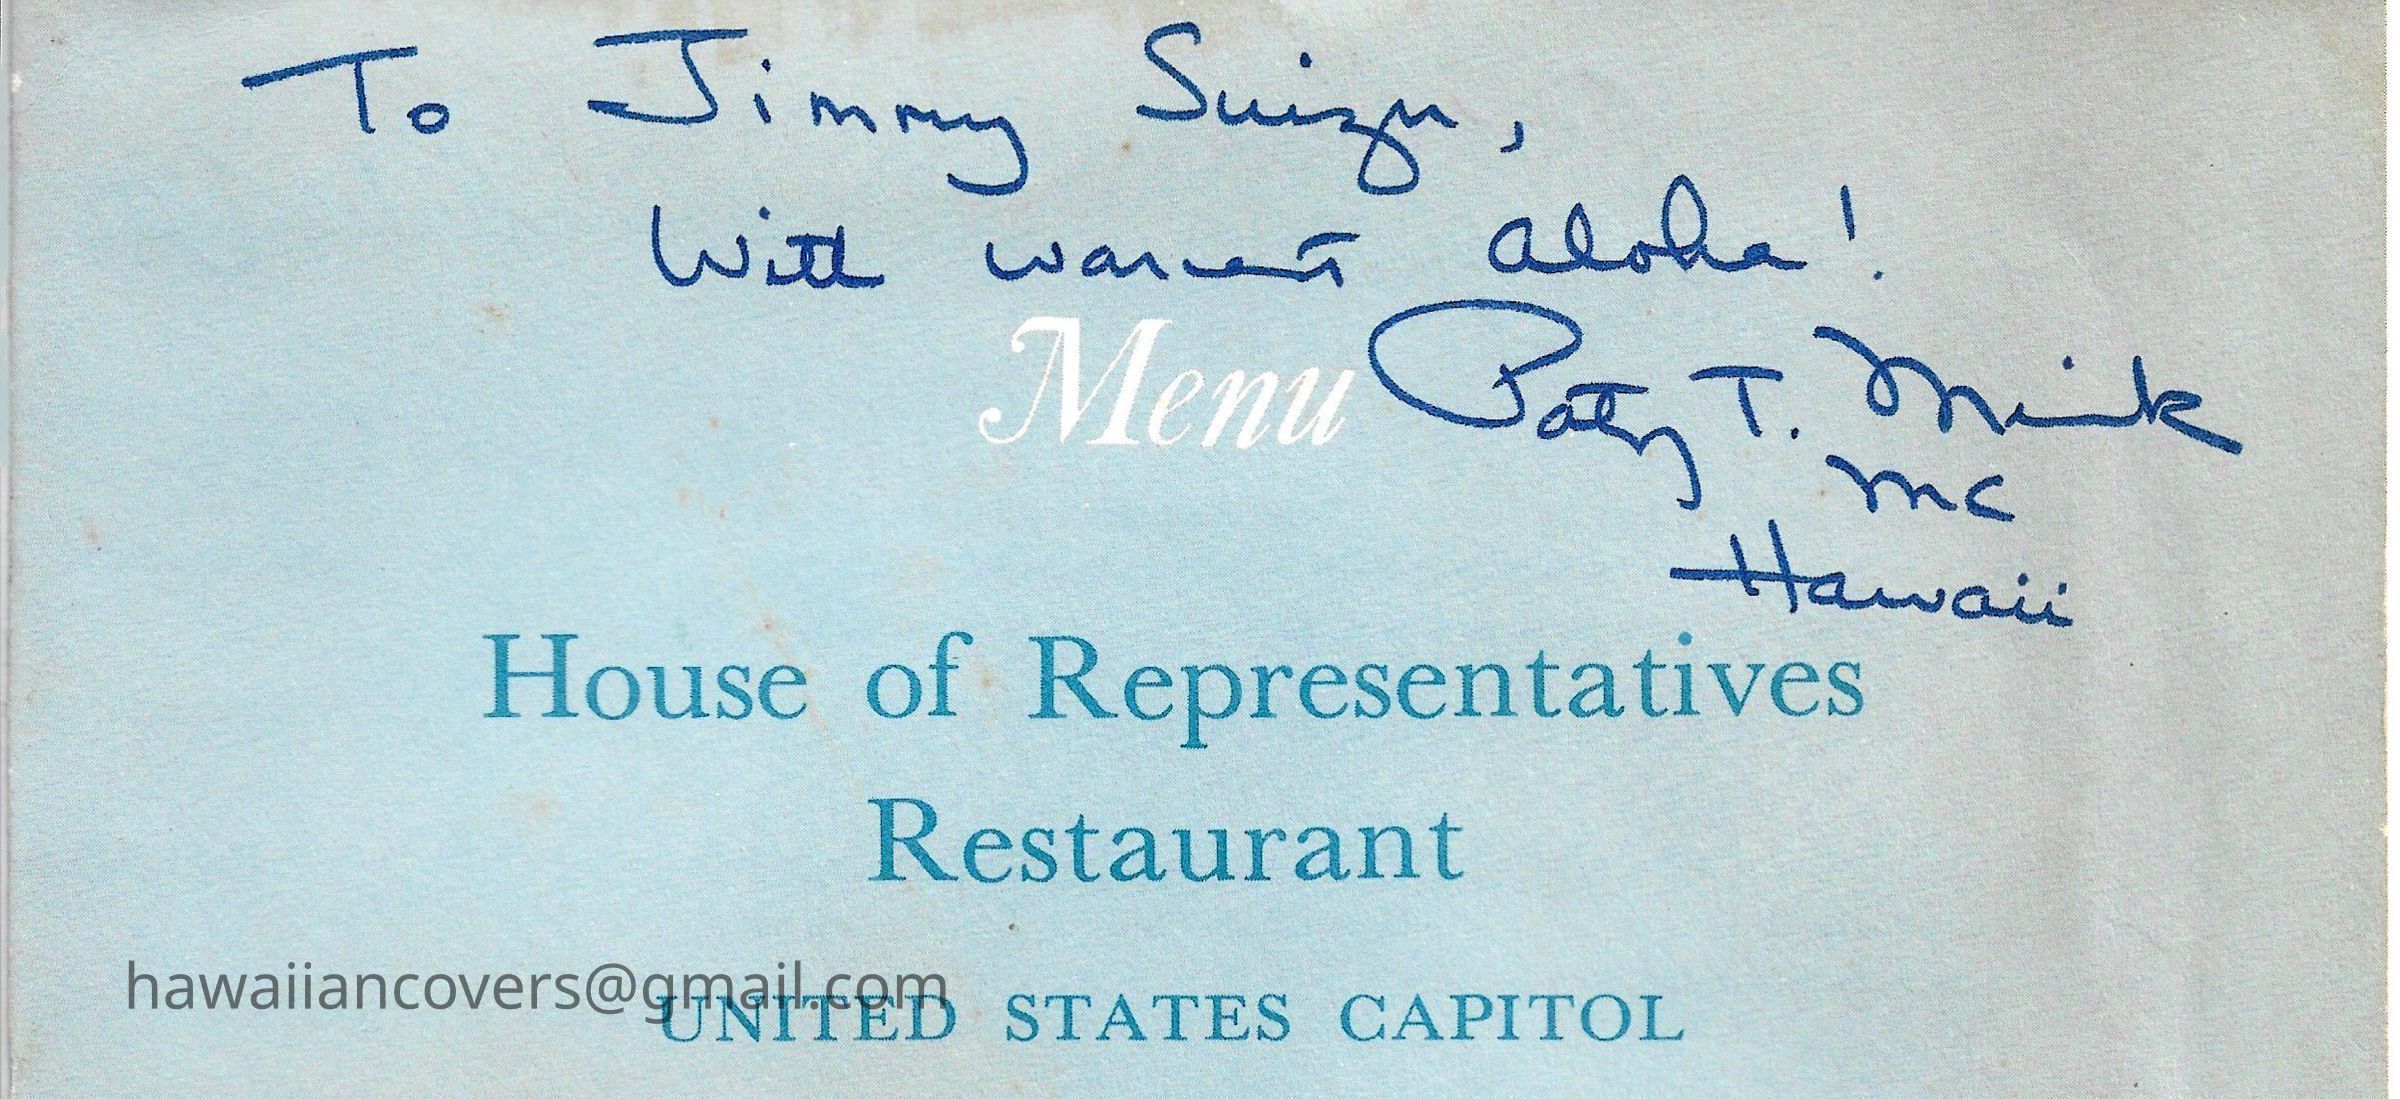 To Jimmy Suizu,
With warmest aloha!
Menu
Patsy T. Mink
MC
Hawaii
House of Representatives
Restaurant
hawaiiancovers@gmail.com
UNITED STATES CAPITOL